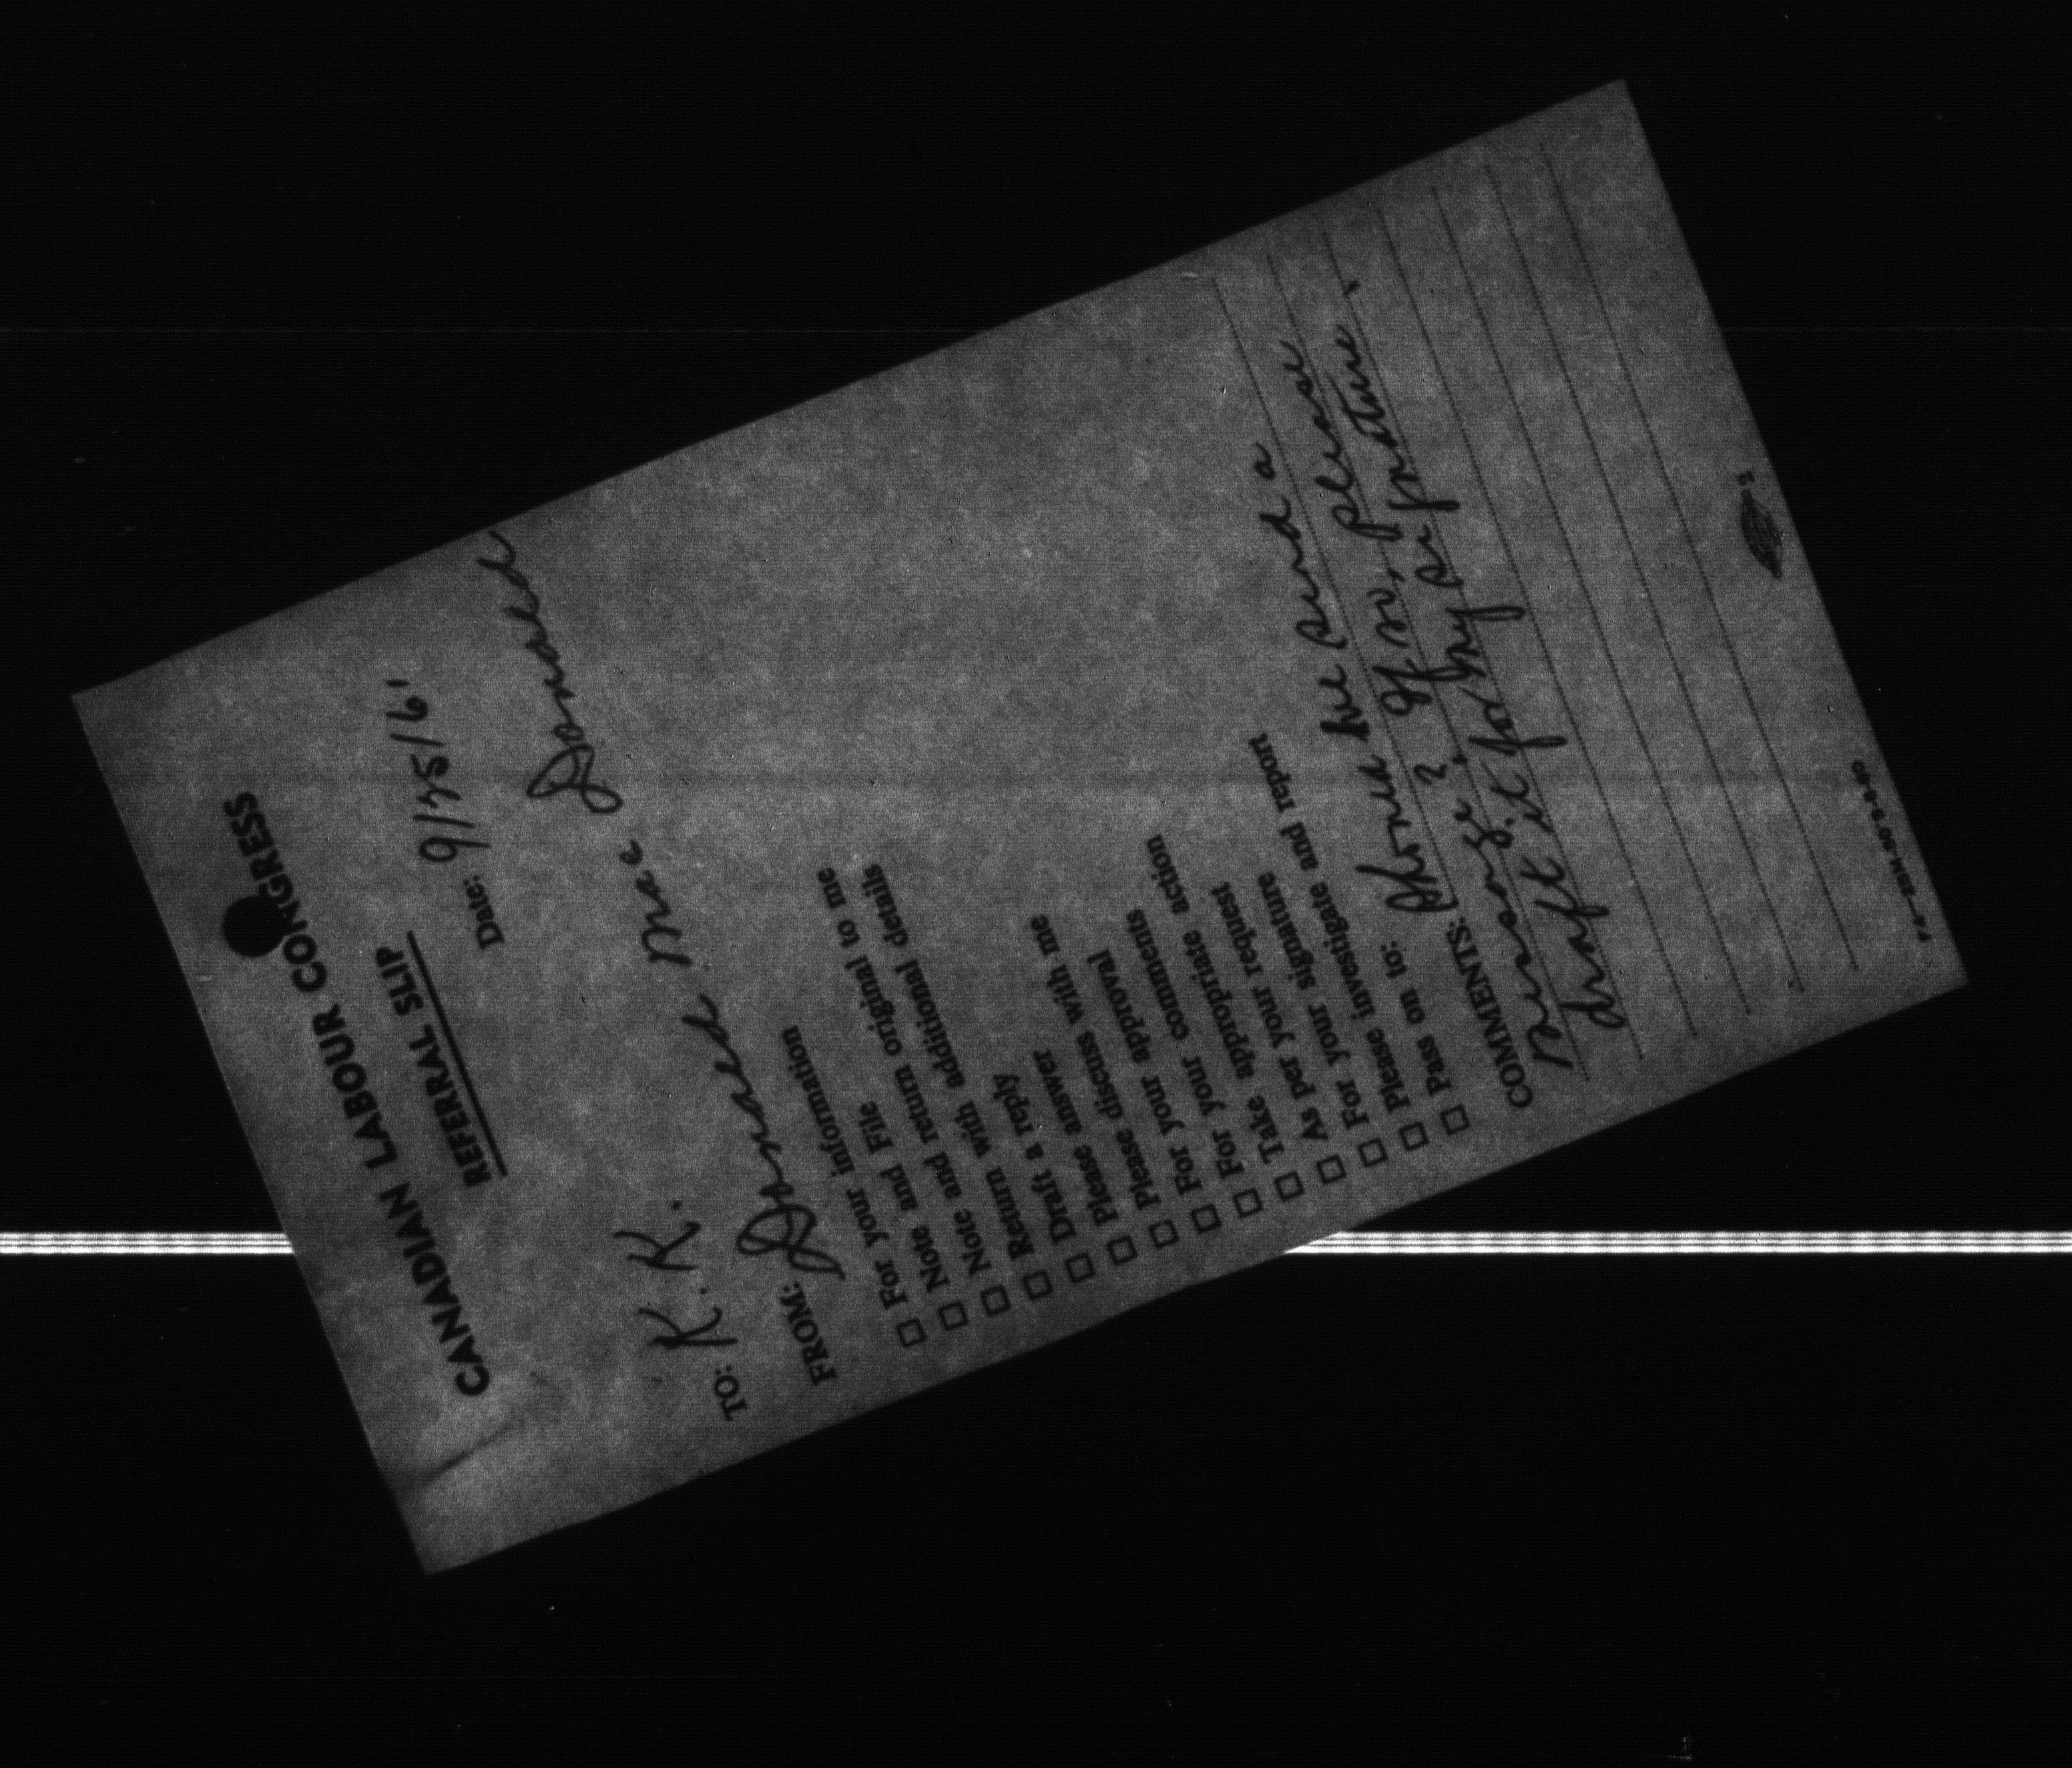 CANADIAN LABOUR CONGRESS
REFERRAL SLIP
Date: 9/25/61
TO: K. K.
FROM: Donald MacDonald
For your information
Note and File
Note and return original to me
Return with additional details
Draft a reply
Please answer
Please discuss with me
For your approval
For your comments
Take appropriate action
As per your request
For your signature
Please investigate and report
Pass on to:
COMMENTS: Should we send a
message? If so, please
draft it for my signature.